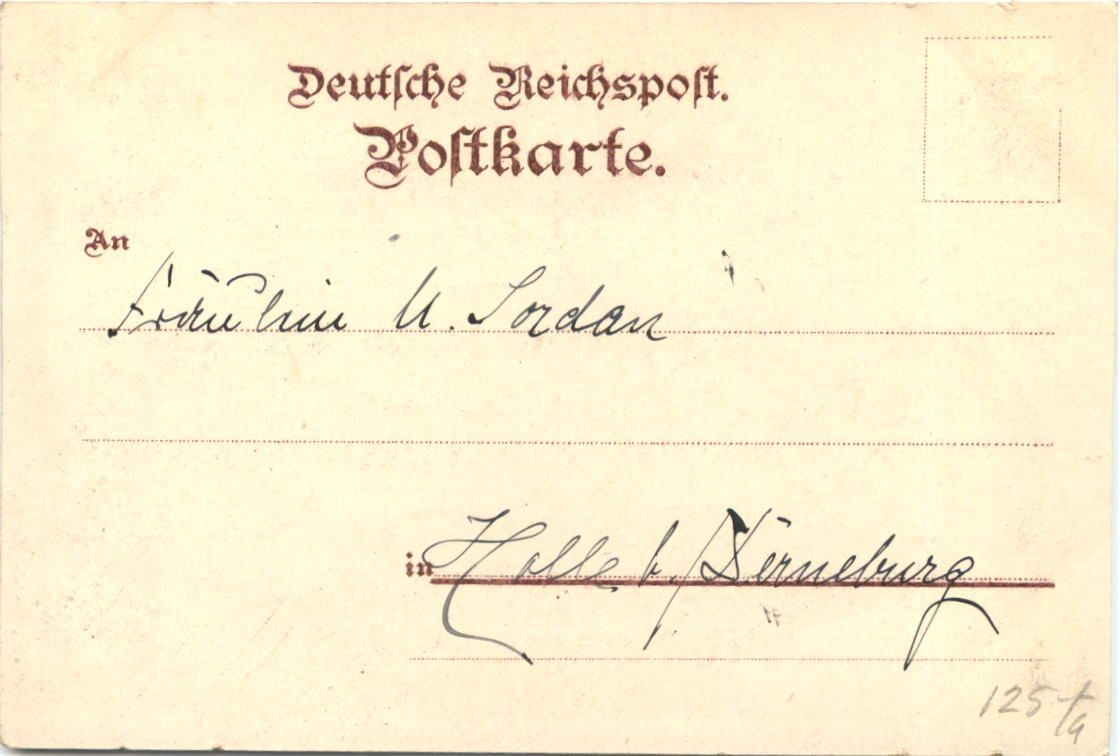 Deutsche Reichspost.
Postkarte.
An
Fräulein M. Jordan
in Holle b./Derneburg
125